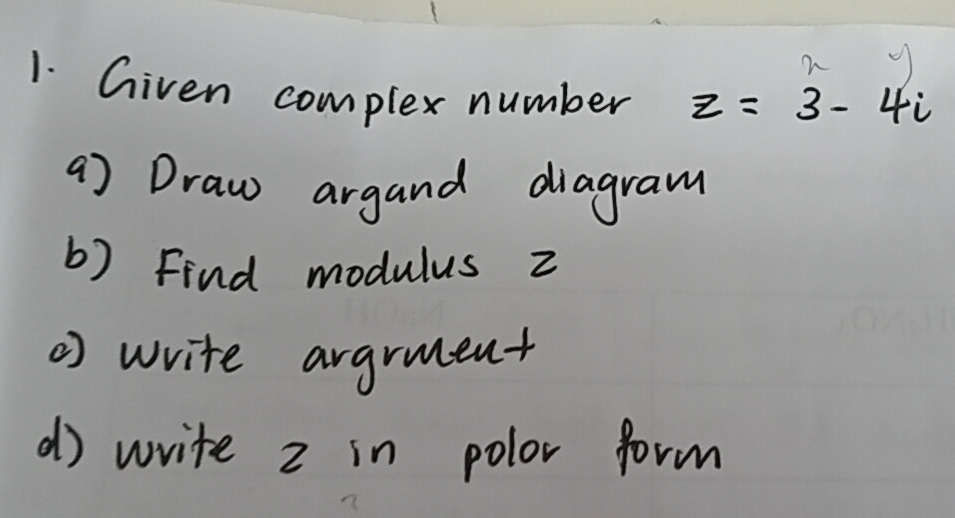 x y
1. Given complex number z = 3 - 4i
a) Draw argand diagram
b) Find modulus z
c) write argrment
d) write z in polor form